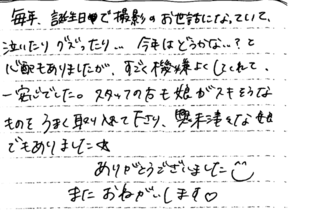 毎年、誕生日で撮影のお世話になっていて、
泣いたり グズったり… 今年はどうかな…？と
心配もありましたが、すごく機嫌よくしてくれて、
一安心でした。スタッフの方も娘がスキそうな
ものを うまく取り入れて下さり、興味津々な娘
でもありました☆
ありがとうございました
またおねがいします♡